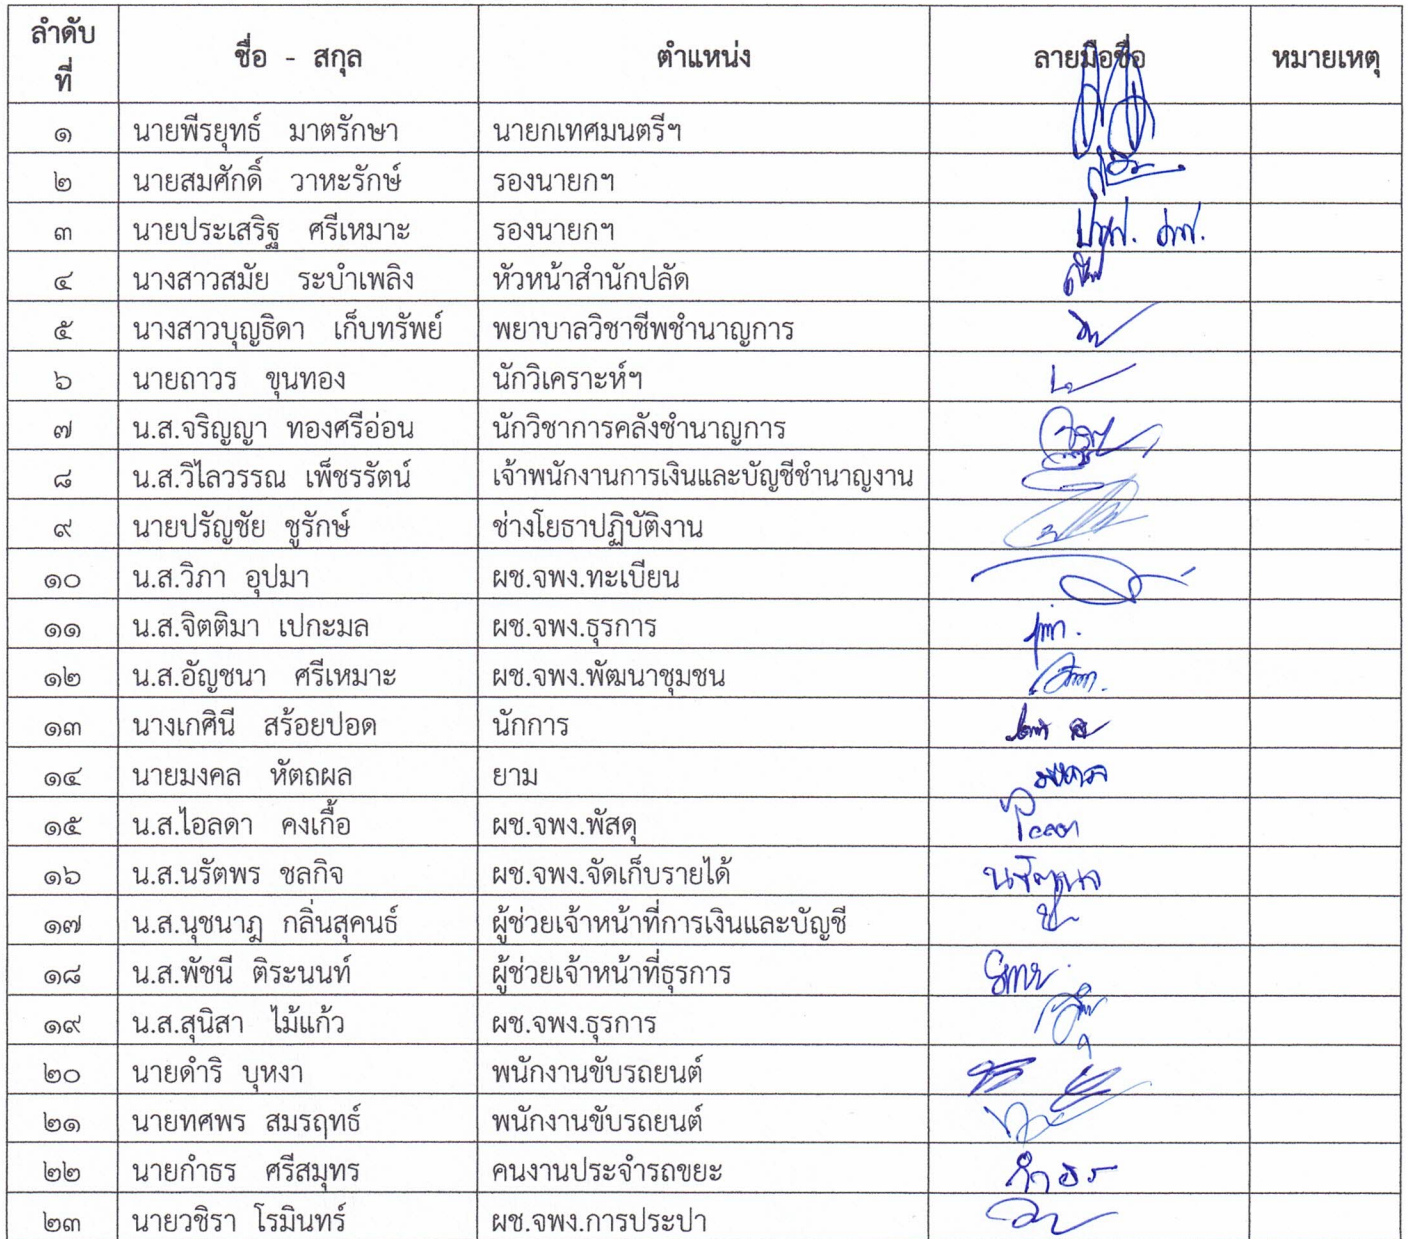 ลำดับ
ที่
ชื่อ - สกุล ตำแหน่ง ลายมือชื่อ หมายเหตุ
๑ นายพีรยุทธ์ มาตรักษา นายกเทศมนตรีฯ
๒ นายสมศักดิ์ วาหะรักษ์ รองนายกฯ
๓ นายประเสริฐ ศรีเหมาะ รองนายกฯ
๔ นางสาวสมัย ระบำเพลิง หัวหน้าสำนักปลัด
๕ นางสาวบุญธิดา เก็บทรัพย์ พยาบาลวิชาชีพชำนาญการ
๖ นายถาวร ขุนทอง นักวิเคราะห์ฯ
๗ น.ส.จริญญา ทองศรีอ่อน นักวิชาการคลังชำนาญการ
๘ น.ส.วิไลวรรณ เพ็ชรรัตน์ เจ้าพนักงานการเงินและบัญชีชำนาญงาน
๙ นายปรัญชัย ชูรักษ์ ช่างโยธาปฏิบัติงาน
๑๐ น.ส.วิภา อุปมา ผช.จพง.ทะเบียน
๑๑ น.ส.จิตติมา เปกะมล ผช.จพง.ธุรการ
๑๒ น.ส.อัญชนา ศรีเหมาะ ผช.จพง.พัฒนาชุมชน
๑๓ นางเกศินี สร้อยปอด นักการ
๑๔ นายมงคล หัตถผล ยาม มงคล
๑๕ น.ส.ไอลดา คงเกื้อ ผช.จพง.พัสดุ ไอลดา
๑๖ น.ส.นรัตพร ชลกิจ ผช.จพง.จัดเก็บรายได้
๑๗ น.ส.นุชนาฎ กลิ่นสุคนธ์ ผู้ช่วยเจ้าหน้าที่การเงินและบัญชี
๑๘ น.ส.พัชนี ติระนนท์ ผู้ช่วยเจ้าหน้าที่ธุรการ
๑๙ น.ส.สุนิสา ไม้แก้ว ผช.จพง.ธุรการ
๒๐ นายดำริ บุหงา พนักงานขับรถยนต์
๒๑ นายทศพร สมรฤทธ์ พนักงานขับรถยนต์
๒๒ นายกำธร ศรีสมุทร คนงานประจำรถขยะ กำธร
๒๓ นายวชิรา โรมินทร์ ผช.จพง.การประปา